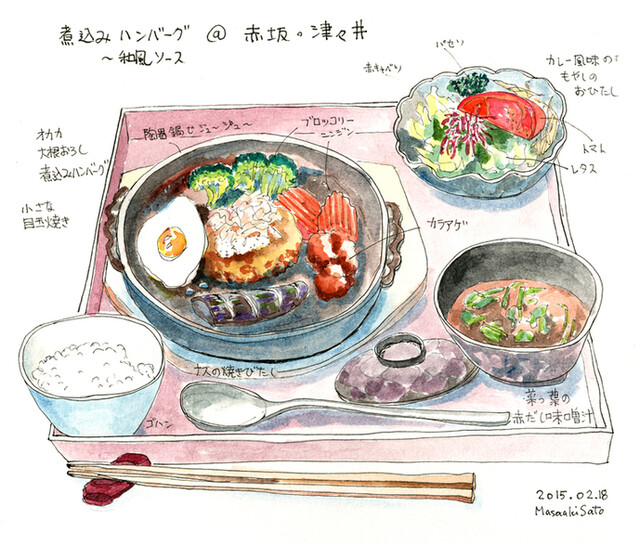 煮込みハンバーグ @ 赤坂・津々井
~和風ソース
パセリ
赤キャベツ
カレー風味の
もやしの
おひたし
トマト
レタス
オカカ
大根おろし
煮込みハンバーグ
小さな
目玉焼き
陶器鍋でジュ〜ジュ〜
ブロッコリー
ニンジン
カラアゲ
ナスの焼きびたし
ゴハン
菜っ葉の
赤だし味噌汁
2015.02.18
Masaaki Sato